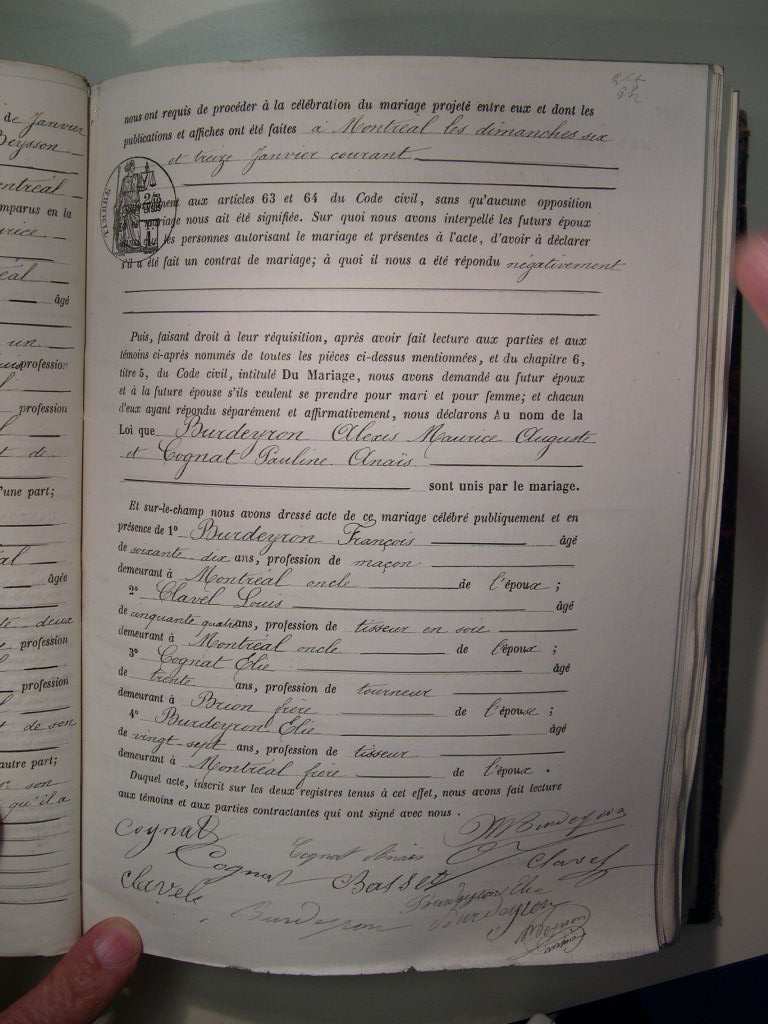 de Janvier
Beysson
Montréal
comparus en la
âgé
un
profession
profession
d'une part;
âgée
profession
profession
et de son
autre part;
son
qu'il a
nous ont requis de procéder à la célébration du mariage projeté entre eux et dont les
publications et affiches ont été faites à Montréal les dimanches six
et treize Janvier courant
aux articles 63 et 64 du Code civil, sans qu'aucune opposition
mariage nous ait été signifiée. Sur quoi nous avons interpellé les futurs époux
les personnes autorisant le mariage et présentes à l'acte, d'avoir à déclarer
s'il a été fait un contrat de mariage; à quoi il nous a été répondu négativement
Puis, faisant droit à leur réquisition, après avoir fait lecture aux parties et aux
témoins ci-après nommés de toutes les pièces ci-dessus mentionnées, et du chapitre 6,
titre 5, du Code civil, intitulé Du Mariage, nous avons demandé au futur époux
et à la future épouse s'ils veulent se prendre pour mari et pour femme; et chacun
d'eux ayant répondu séparément et affirmativement, nous déclarons Au nom de la
Loi que Burdeyron Alexis Maurice Auguste
et Cognat Pauline Anaïs
sont unis par le mariage.
Et sur-le-champ nous avons dressé acte de ce mariage célébré publiquement et en
présence de 1° Burdeyron François âgé
de soixante dix ans, profession de maçon
demeurant à Montréal oncle de l'époux ;
2° Clavel Louis âgé
de cinquante quatre ans, profession de tisseur en soie
demeurant à Montréal oncle de l'époux ;
3° Cognat Elie âgé
de trente ans, profession de tourneur
demeurant à Brion frère de l'épouse ;
4° Burdeyron Elie âgé
de vingt-sept ans, profession de tisseur
demeurant à Montréal frère de l'époux .
Duquel acte, inscrit sur les deux registres tenus à cet effet, nous avons fait lecture
aux témoins et aux parties contractantes qui ont signé avec nous .
Cognat
Cognat Anaïs
Cognat
Basset
Clavel
Clavel
Burdeyron Elie
Burdeyron
Burdeyron